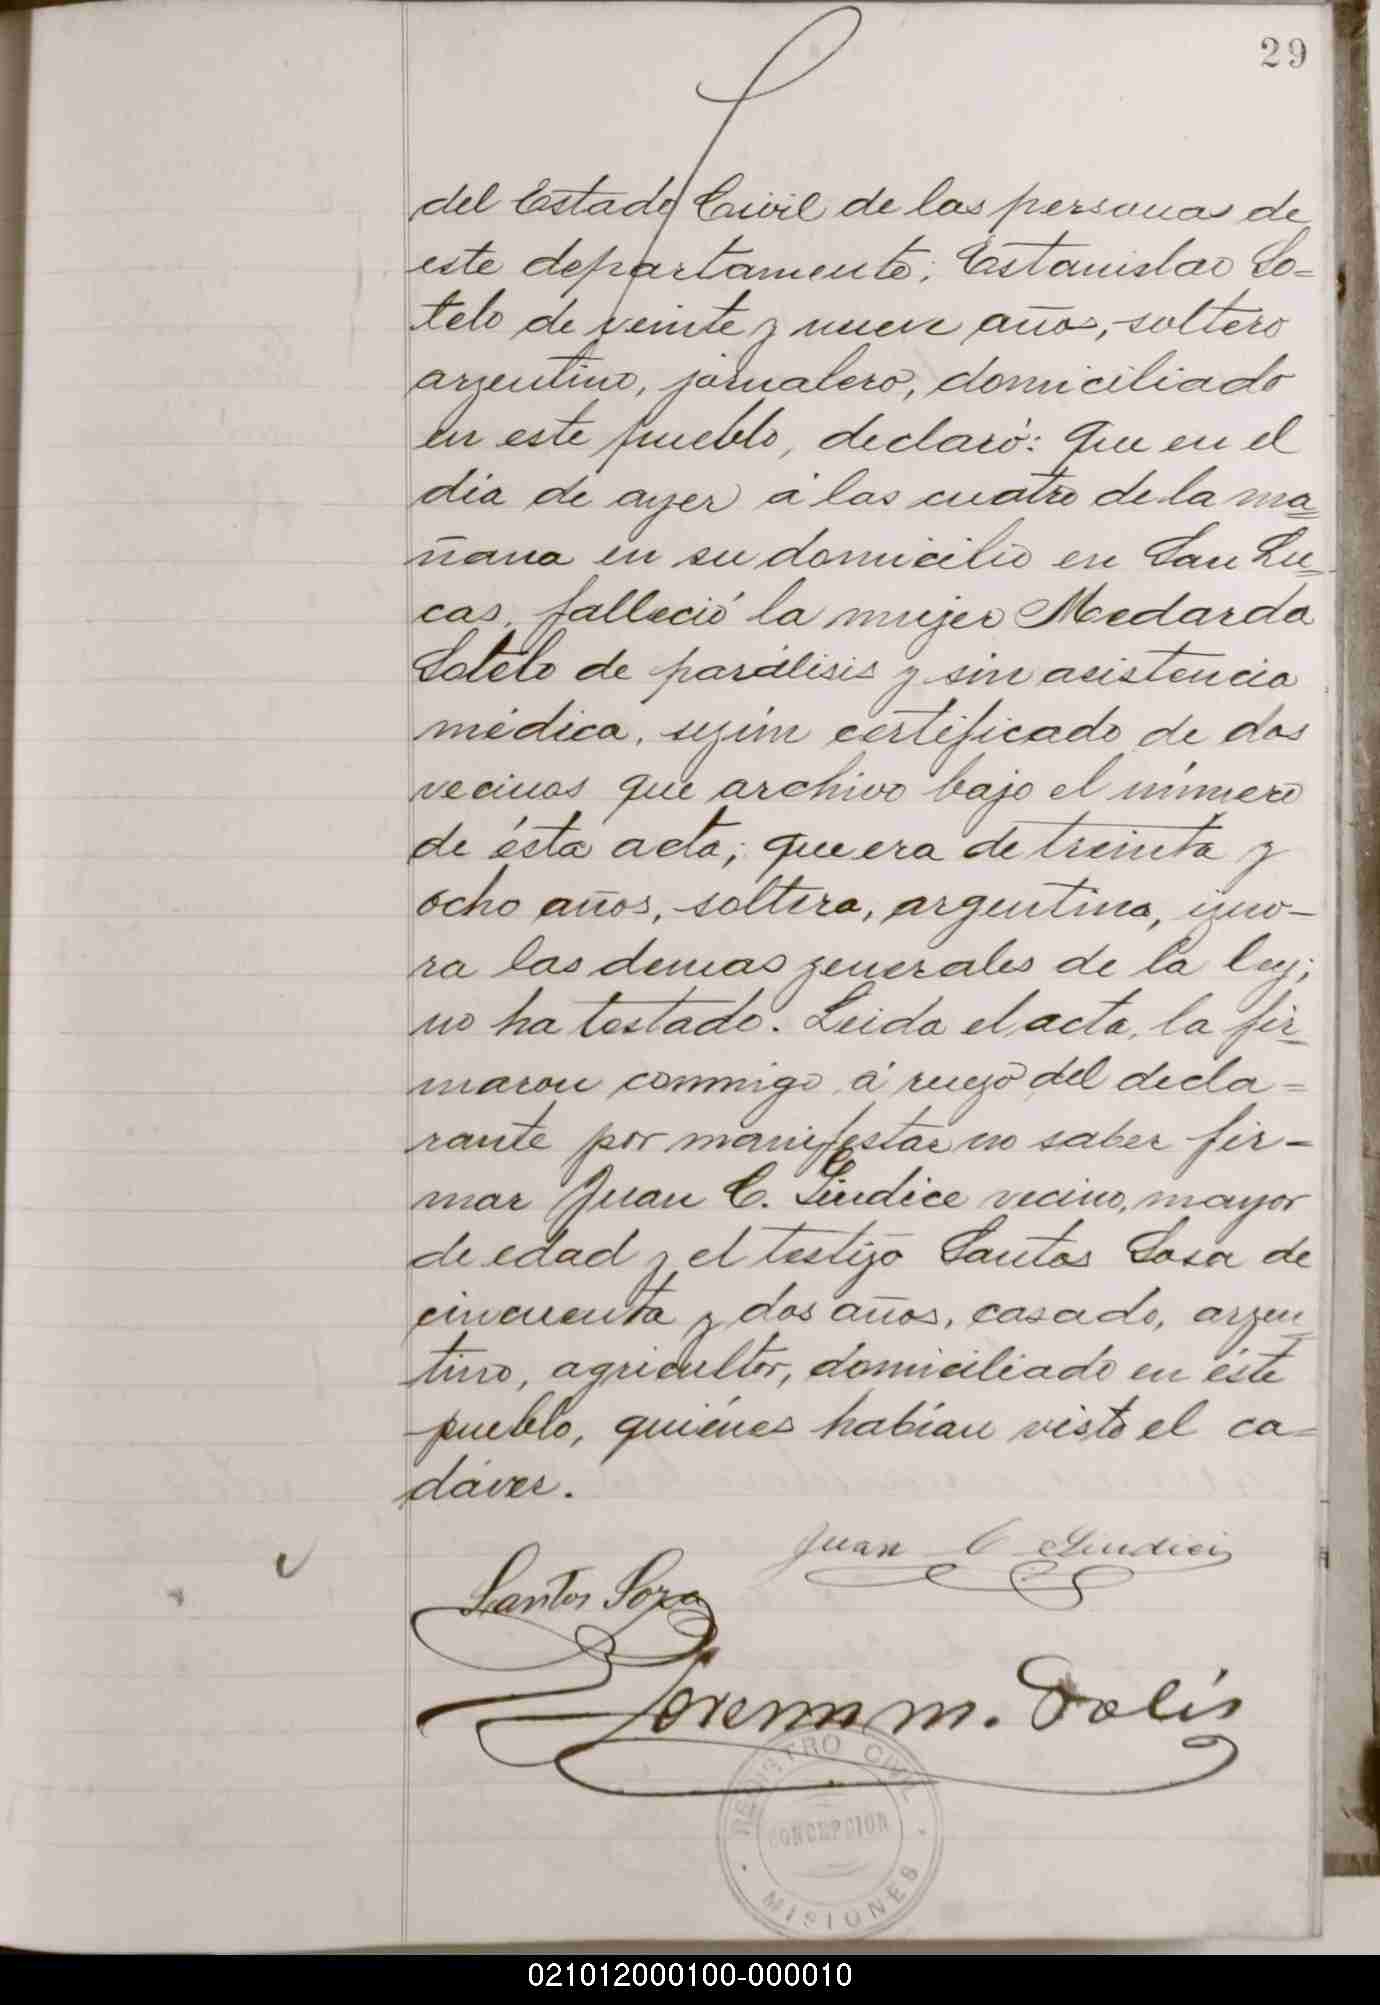 29
del Estado Civil de las personas de
este departamento; Estanislao So=
telo de veinte y nueve años, soltero
argentino, jornalero, domiciliado
en este pueblo, declaró: Que en el
dia de ayer á las cuatro de la ma=
ñana en su domicilio en San Lu=
cas, falleció la mujer Medarda
Sotelo de parálisis y sin asistencia
médica, según certificado de dos
vecinos que archivo bajo el número
de ésta acta; que era de treinta y
ocho años, soltera, argentina, igno-
ra las demas generales de la ley;
no ha testado. Leida el acta, la fir=
maron conmigo á ruego del decla=
rante por manifestar no saber fir-
mar Juan C. Lindice vecino, mayor
de edad y el testigo Santos Sosa de
cincuenta y dos años, casado, argen=
tino, agricultor, domiciliado en éste
pueblo, quiénes habían visto el ca=
dáver.
Juan C
Santos Soza
m. Solis
REGISTRO CIVIL
CONCEPCION
MISIONES
021012000100-000010